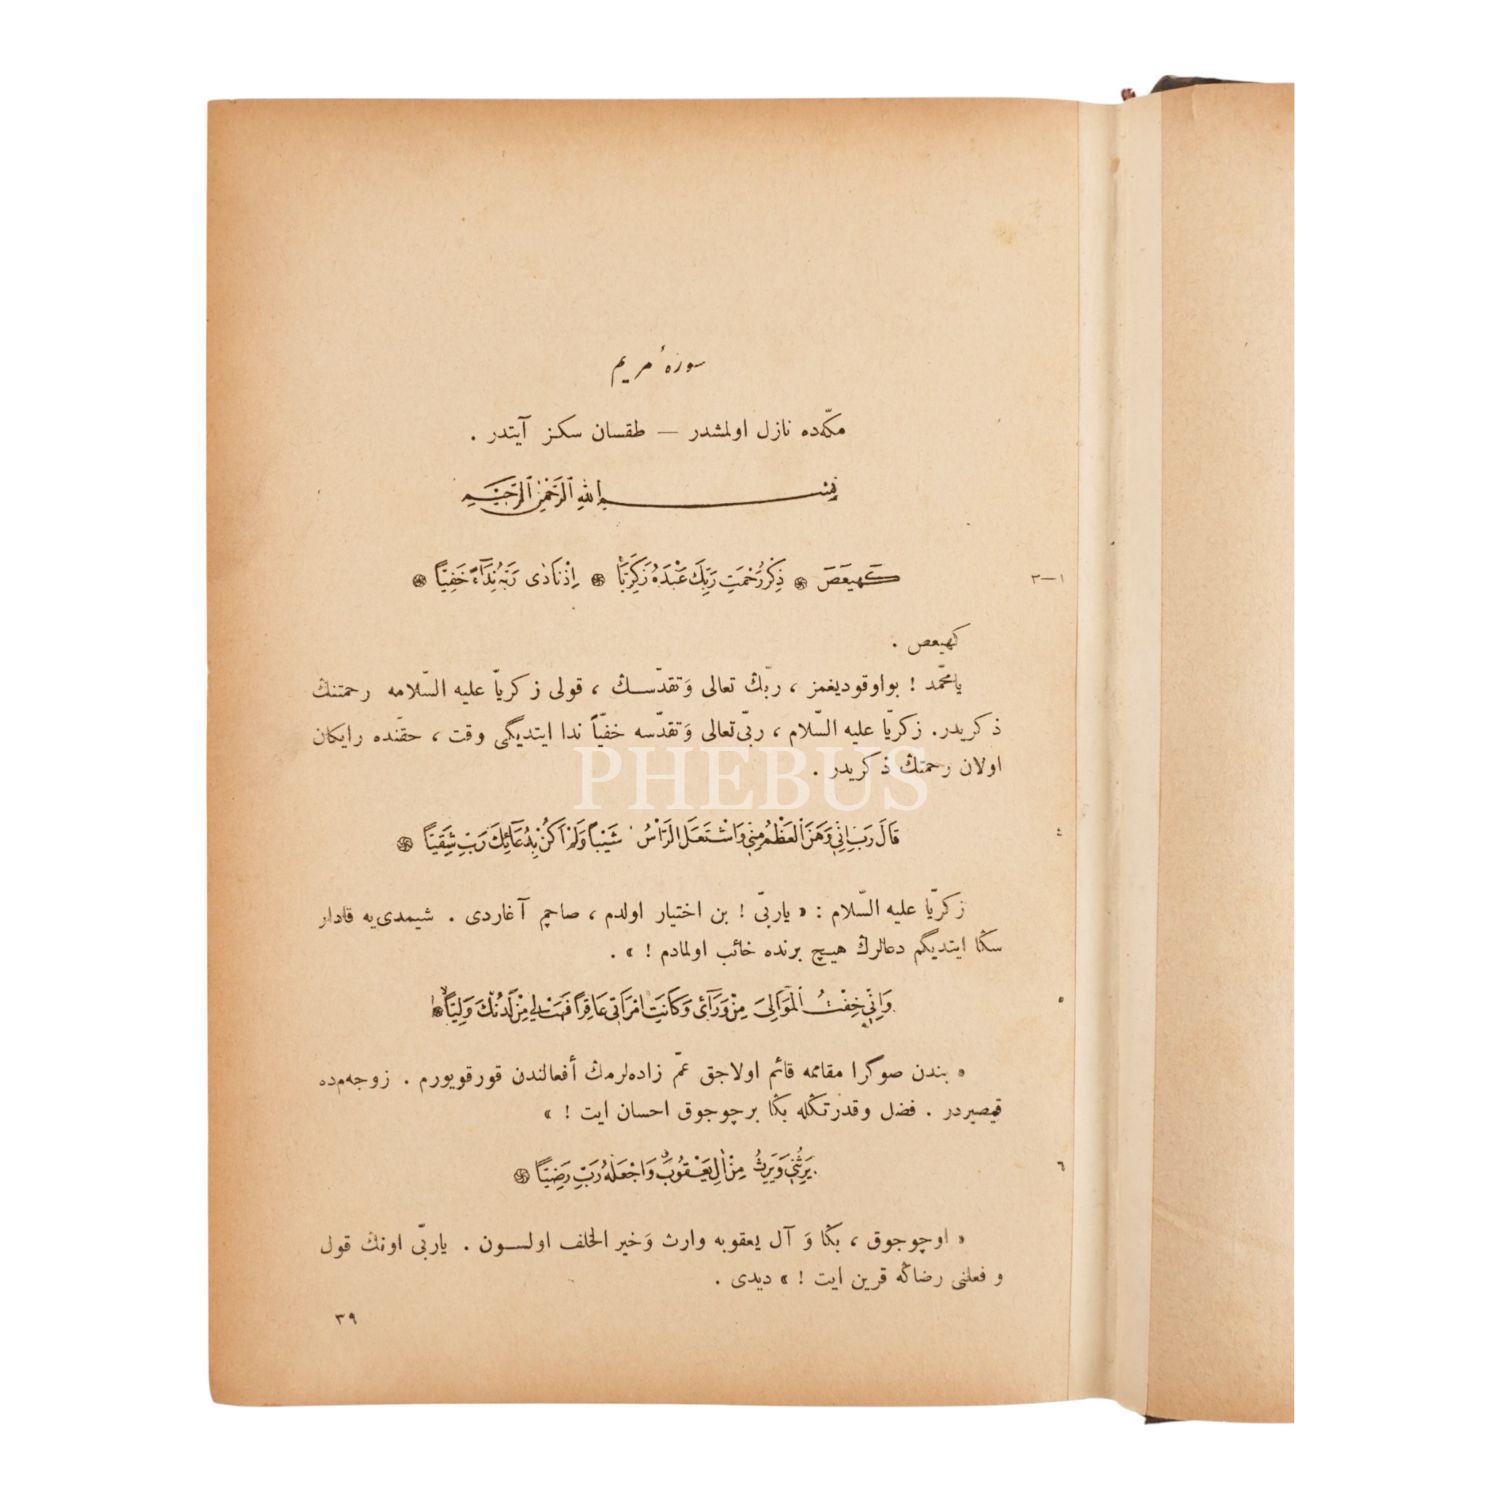 سورهٔ مريم
مكّه‌ده نازل اولمشدر — طقسان سكز آيتدر .
بِسْمِ اللهِ الرَّحْمٰنِ الرَّحِيمِ
١—٣
كَهيعَصَ ۞ ذِكْرُ رَحْمَتِ رَبِّكَ عَبْدَهُ زَكَرِيَّا ۞ اِذْ نَادٰى رَبَّهُ نِدَاءً خَفِيًّا ۞
كهيعص .
يا محمّد ! بو اوقوديغمز ، ربّڭ تعالى وَتقدّسڭ ، قولى زكريّا عليه السّلامه رحمتنڭ
ذكريدر. زكريّا عليه السّلام ، ربّى تعالى وَتقدّسه خفيّاً ندا ايتديگى وقت ، حقّنده رايكان
اولان رحمتڭ ذكريدر .
PHEBUS
٤
قَالَ رَبِّ اِنّى وَهَنَ الْعَظْمُ مِنّى وَاشْتَعَلَ الرَّاْسُ شَيْبًا وَلَمْ اَكُنْ بِدُعَائِكَ رَبِّ شَقِيًّا ۞
زكريّا عليه السّلام : « ياربّى ! بن اختيار اولدم ، صاچم آغاردى . شيمدى‌يه قادار
سڭا ايتديگم دعالرڭ هيچ برنده خائب اولمادم ! » .
٥
وَاِنّى خِفْتُ الْمَوَالِىَ مِنْ وَرَآئى وَكَانَتِ امْرَاَتى عَاقِرًا فَهَبْ لى مِنْ لَدُنْكَ وَلِيًّا ۞
« بندن صوڭرا مقاممه قائم اولاجق عمّ زاده‌لرمڭ أفعالندن قورقويورم . زوجه‌م‌ده
قيصيردر . فضل وقدرتڭله بڭا برچوجوق احسان ايت ! »
٦
يَرِثُنى وَيَرِثُ مِنْ اٰلِ يَعْقُوبَ وَاجْعَلْهُ رَبِّ رَضِيًّا ۞
« اوچوجوق ، بڭا وَ آل يعقوبه وارث وَخير الخلف اولسون . ياربّى اونڭ قول
و فعلنى رضاڭه قرين ايت ! » ديدى .
٣٩